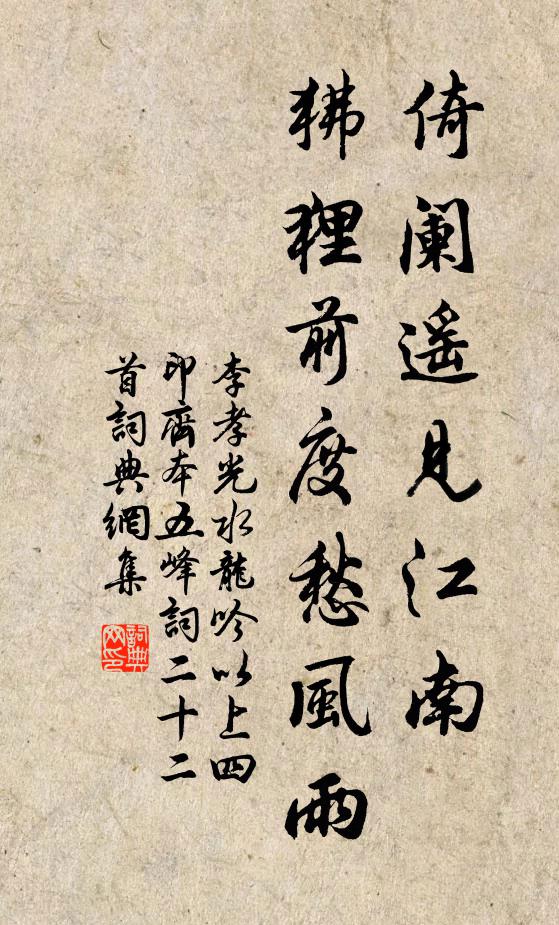 倚阑遥見江南
狒狸前度愁風雨
李孝光水龍吟以上四
印齋本五峰詞二十二
首詞典網集
詞典网印